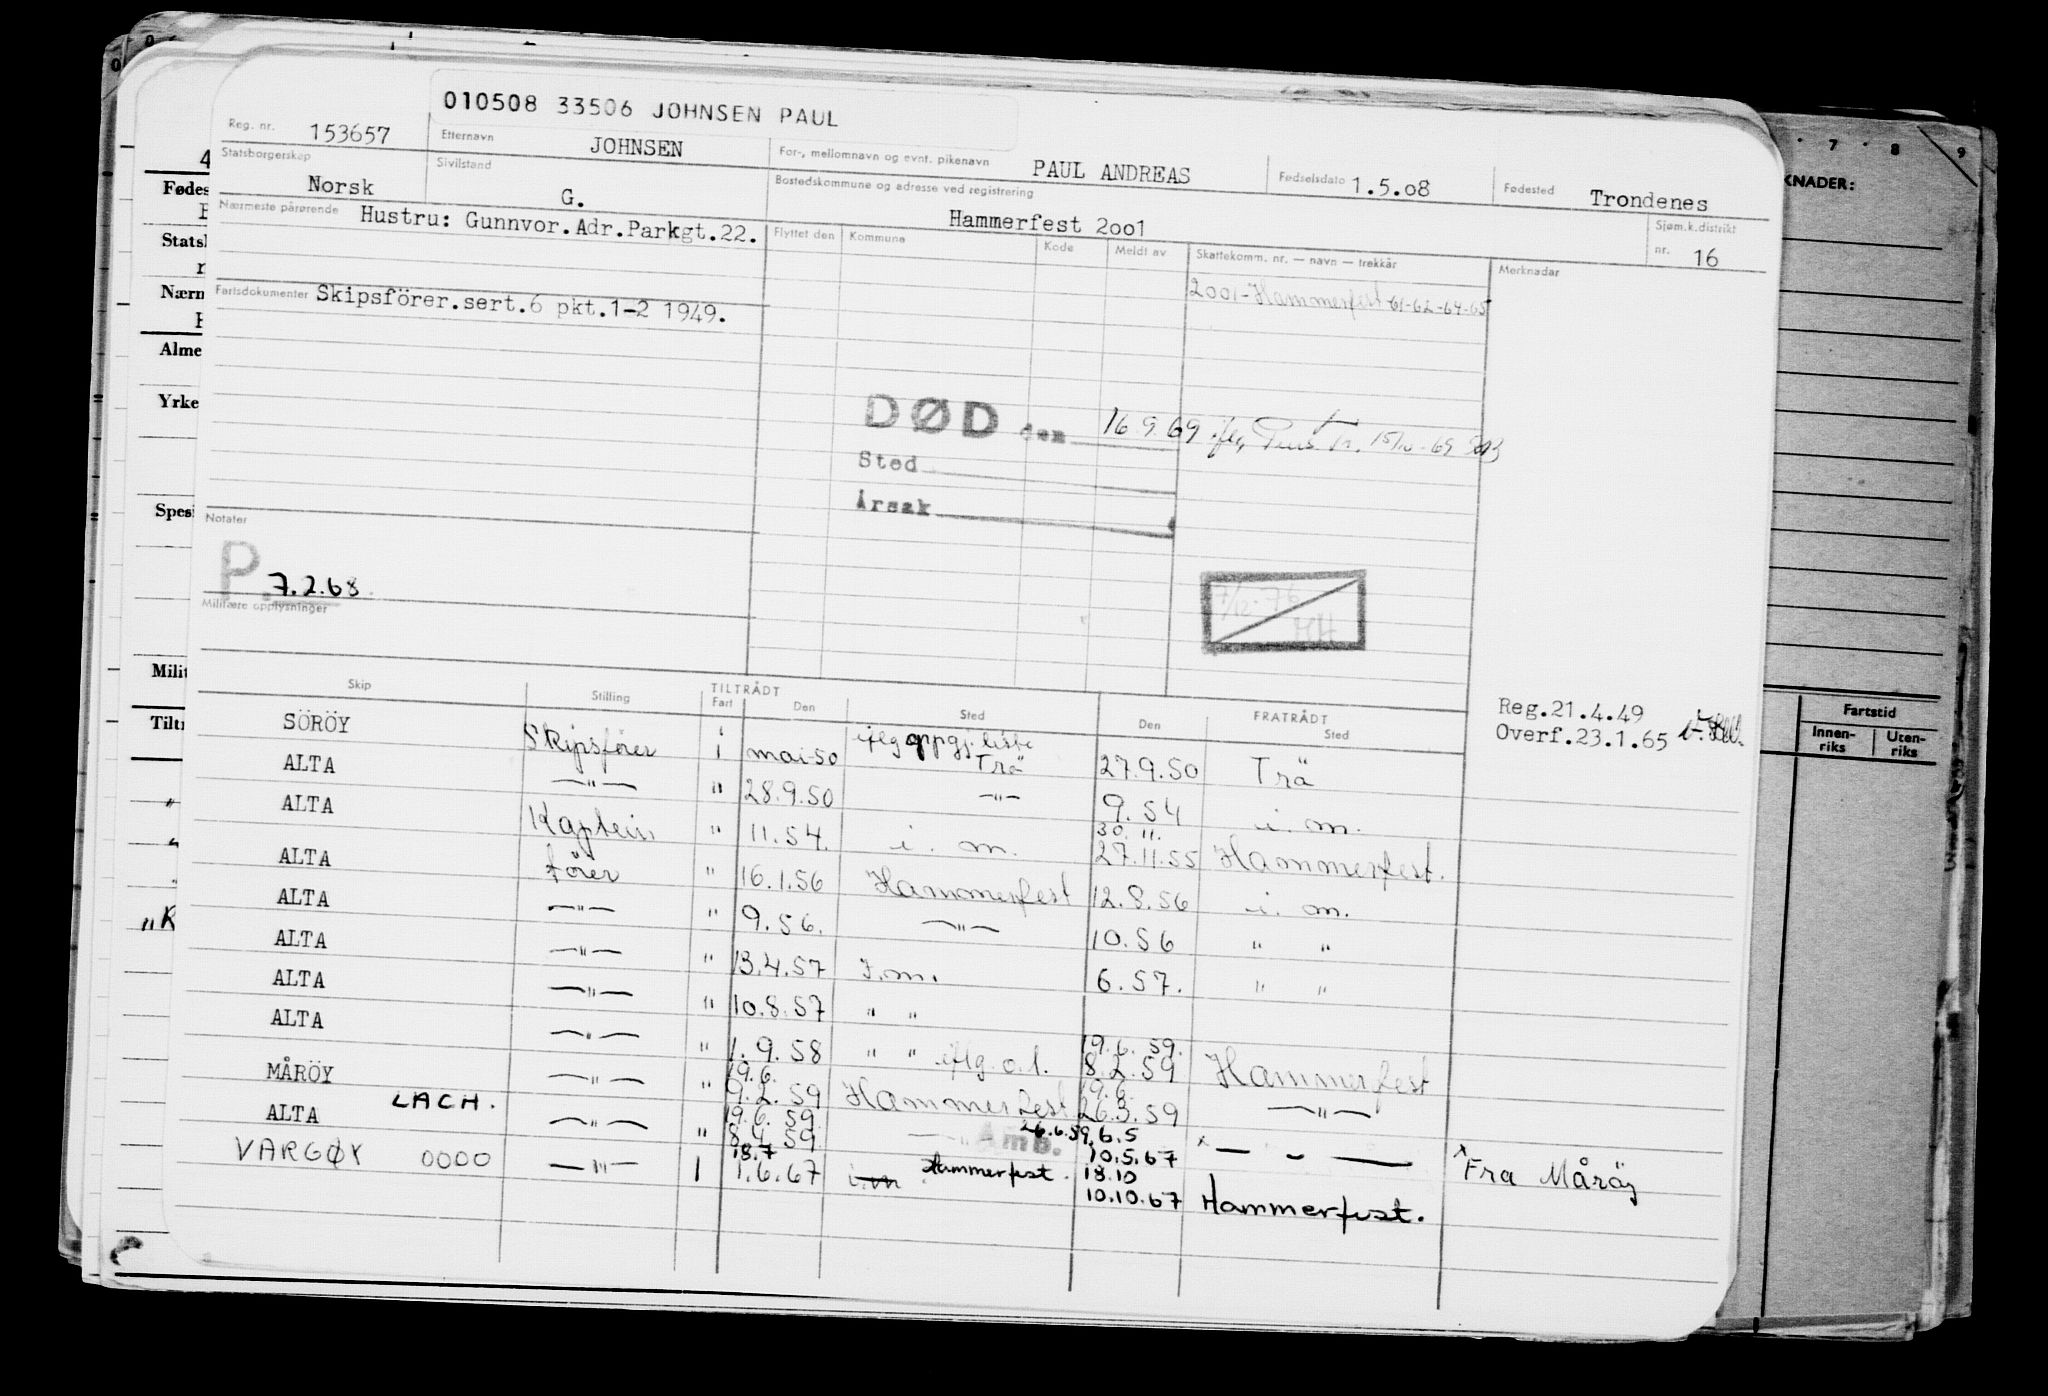 010508 33506 JOHNSEN PAUL
Reg. nr. 153657 Etternavn JOHNSEN For-, mellomnavn og evnt. pikenavn PAUL ANDREAS Fødselsdato 1.5.08 Fødested Trondenes
Statsborgerskap Norsk Sivilstand G. Bostedskommune og adresse ved registrering Hammerfest 2001 Sjøm.k.distrikt nr. 16
Nærmeste pårørende Hustru: Gunnvor.Adr.Parkgt.22. Flyttet den Kommune Kode Meldt av Skattekomm. nr. — navn — trekkår Merknader
2001-Hammerfest 61-62-64-65
Fartsdokumenter Skipsförer.sert.6 pkt.1-2 1949.
DØD den 16.9.69
Sted
Årsak
Notater
P. 7.2.68
Militære opplysninger
7/12-76
HH
Reg.21.4.49
Overf.23.1.65
Skip Stilling TILTRÅDT Fart Den Sted FRATRÅDT Den Sted
SÖRÖY Skipsförer i mai-50 iflg oppgj. liste Trä 27.9.50 Trä
ALTA —"— " 28.9.50 —"— 9.54 i. m.
ALTA Kaptein " 11.54. i. m. 30. 11. 27.11.55 Hammerfest.
ALTA förer " 16.1.56 Hammerfest 12.8.56 i. m.
ALTA —"— " 9.56. —"— 10.56 " "
ALTA —"— " 13.4.57 I.m. 6.57. " "
ALTA —"— " 10.8.57 " "
ALTA —"— " 1.9.58 " " iflg.o.l. 19.6.59. 8.2.59 Hammerfest
MÅRÖY —"— " 19.6. 9.2.59 Hammerfest 19.6. 26.3.59 —"—
ALTA LACH. —"— " 19.6.59. 8.4.59 —"— Amb. 26.6.59, 6.5 10.5.67 x — - — x Fra Måröy
VARGØY 0000 —"— 1 18.7 1.6.67 i.m Hammerfest. 18.10 10.10.67 Hammerfest.
7 8 9
KNADER:
Fartstid
Innen-riks Uten-riks